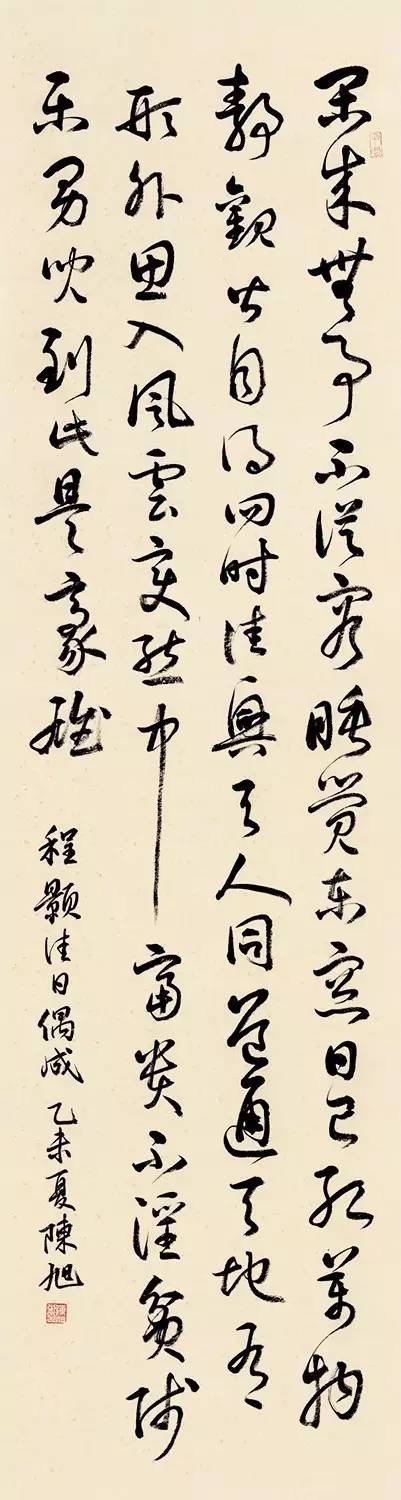 閑来無事不從容睡覺東窓日已紅萬物
静觀皆自得四时佳興与人同道通天地有
形外思入風雲变態中富貴不淫貧賤
乐男兒到此是豪雄
程顥佳日偶成 乙未夏陳旭